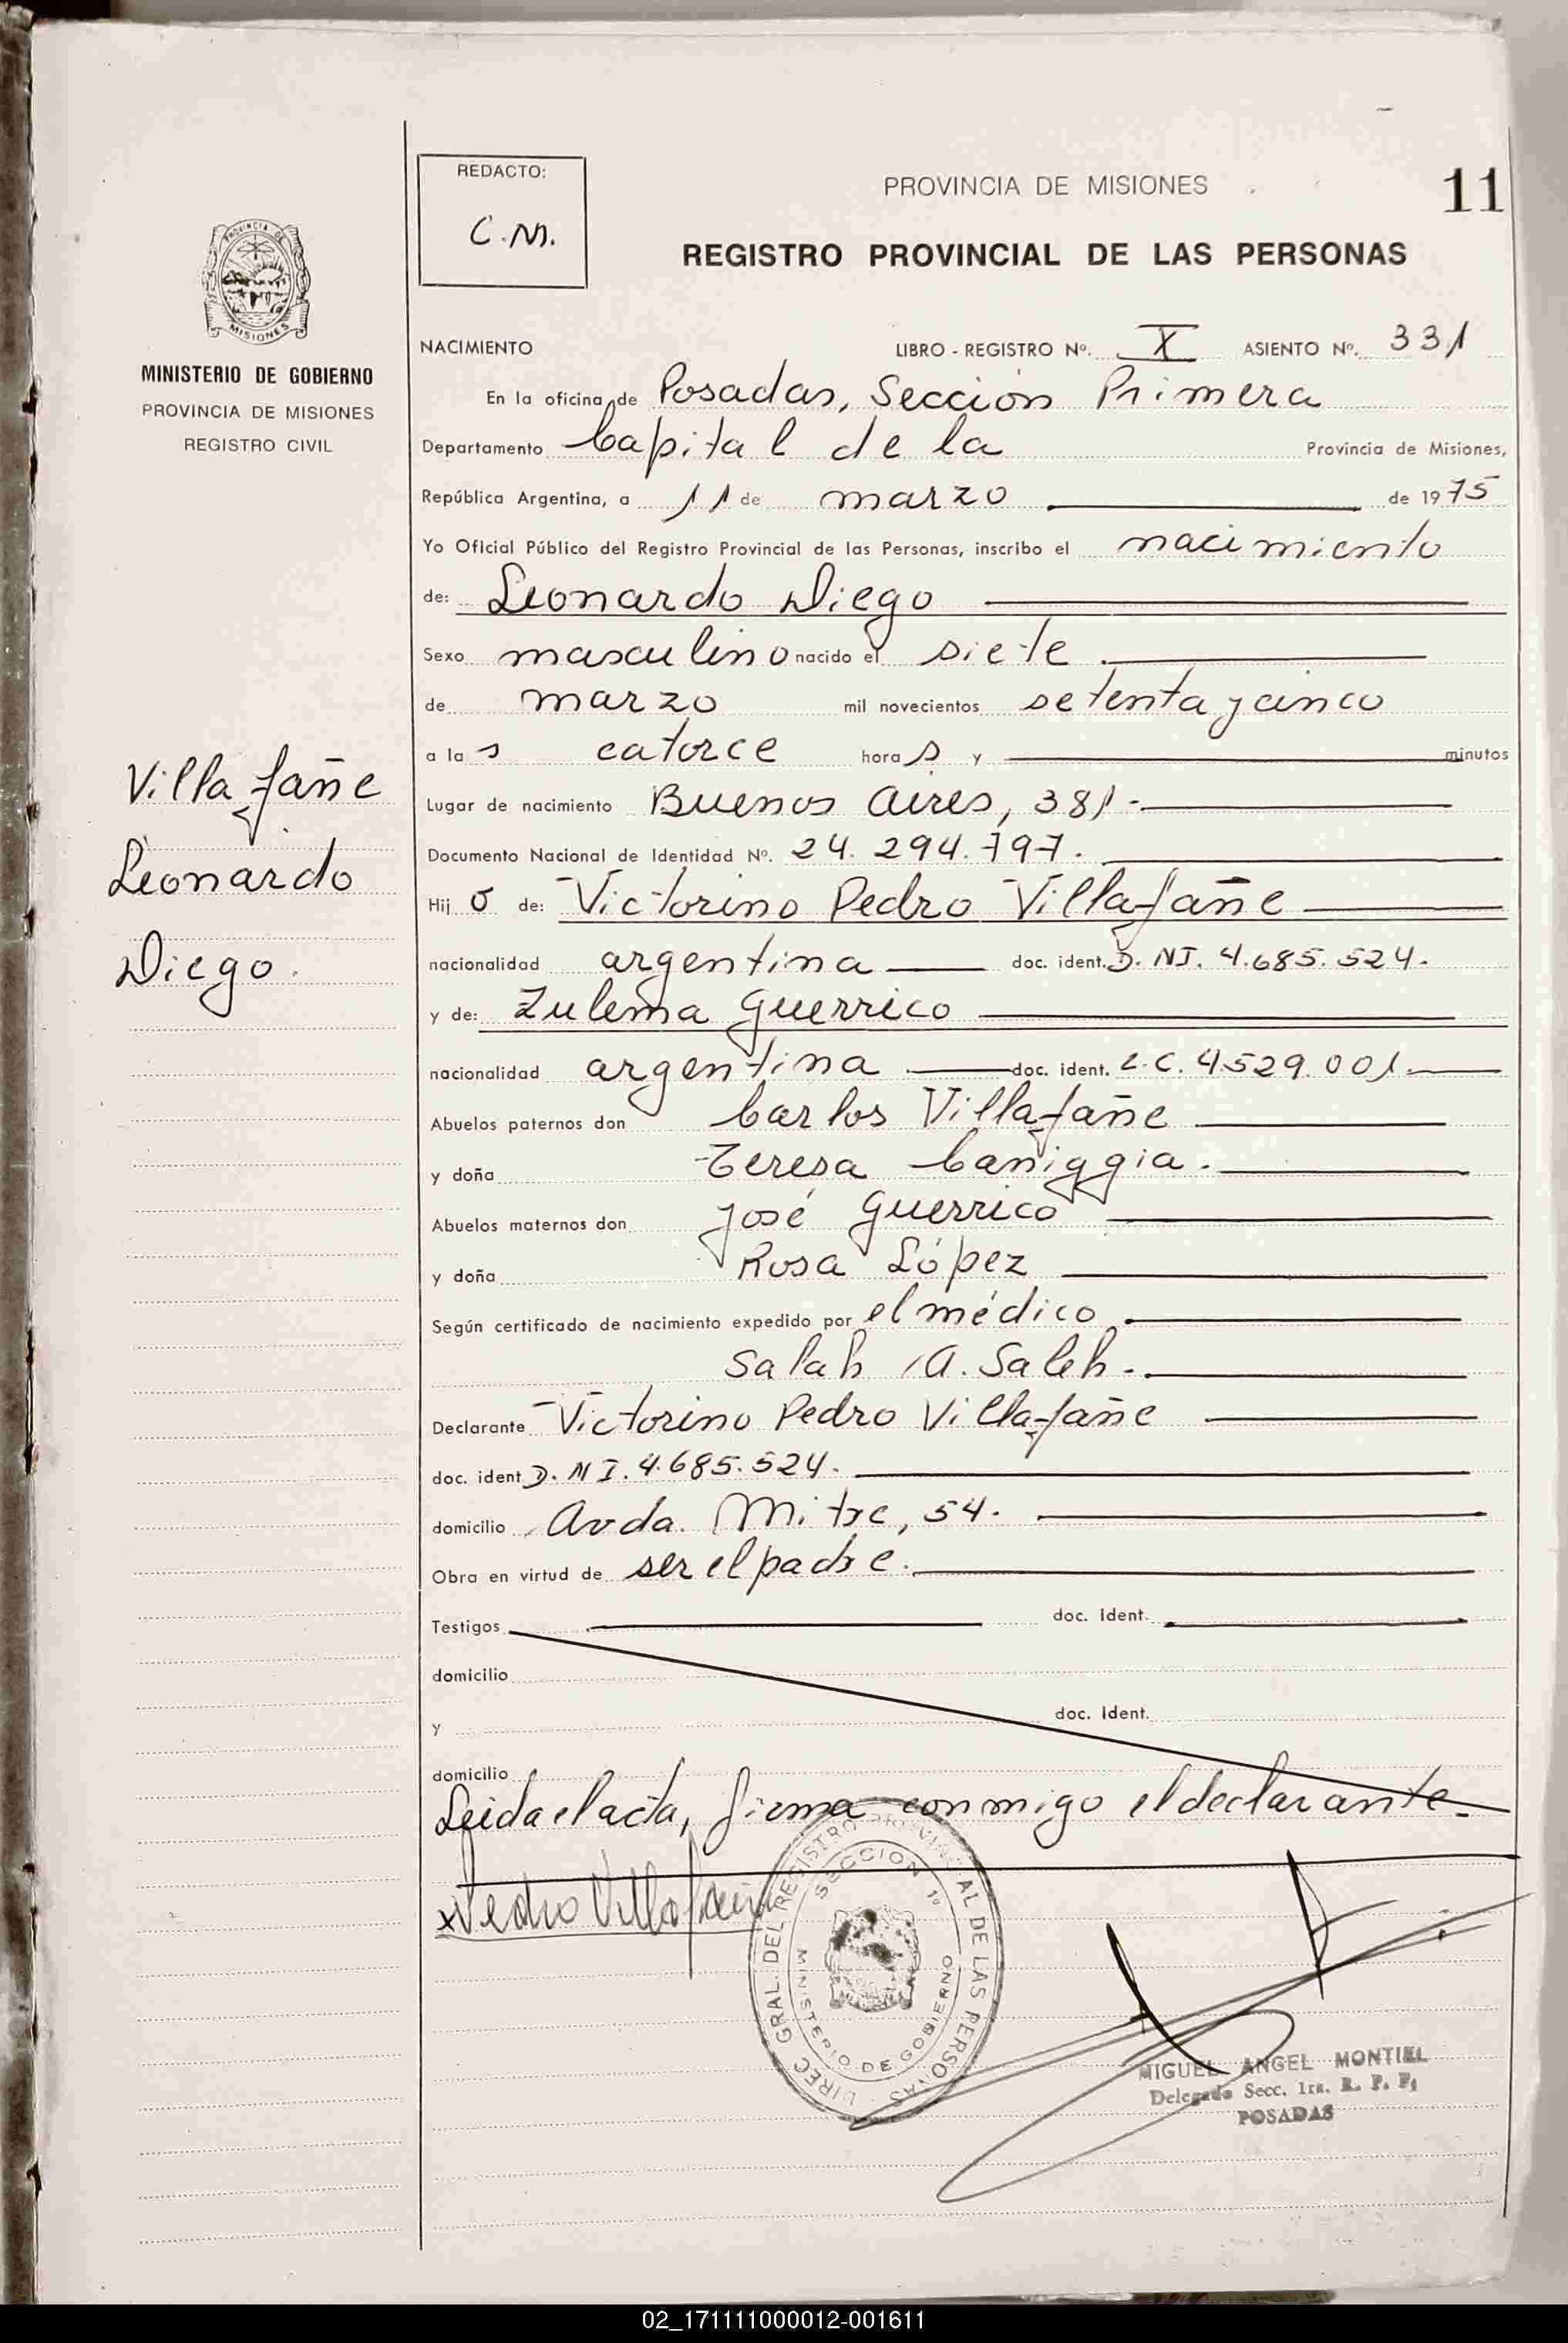 REDACTO:
C.M.
PROVINCIA DE MISIONES
11
REGISTRO PROVINCIAL DE LAS PERSONAS
PROVINCIA DE
MISIONES
MINISTERIO DE GOBIERNO
PROVINCIA DE MISIONES
REGISTRO CIVIL
Villafañe
Leonardo
Diego.
NACIMIENTO LIBRO - REGISTRO Nº. X ASIENTO Nº. 331
En la oficina de Posadas, Sección Primera
Departamento Capital de la Provincia de Misiones,
República Argentina, a 11 de marzo de 1975
Yo Oficial Público del Registro Provincial de las Personas, inscribo el nacimiento
de: Leonardo Diego
Sexo masculino nacido el siete
de marzo mil novecientos setenta y cinco
a las catorce horas y minutos
Lugar de nacimiento Buenos Aires, 381.-
Documento Nacional de Identidad Nº. 24.294.797.
Hijo de: Victorino Pedro Villafañe
nacionalidad argentina doc. ident. D.NI. 4.685.524.
y de: Zulema Guerrico
nacionalidad argentina doc. ident. L.C. 4.529.001.
Abuelos paternos don Carlos Villafañe
y doña Teresa Caniggia.
Abuelos maternos don José Guerrico
y doña Rosa López
Según certificado de nacimiento expedido por el médico
Salah A. Saleh.
Declarante Victorino Pedro Villafañe
doc. ident. D.NI. 4.685.524.
domicilio Avda. Mitre, 54.
Obra en virtud de ser el padre.
Testigos doc. ident.
domicilio
y doc. ident.
domicilio
Leida el acta, firma conmigo el declarante.
x Pedro Villafañe
DIREC. GRAL. DEL REGISTRO PROVINCIAL DE LAS PERSONAS
SECCION 1º
MINISTERIO DE GOBIERNO
MIGUEL ANGEL MONTIEL
Delegado Secc. 1ra. R. P. P.
POSADAS
02_171111000012-001611